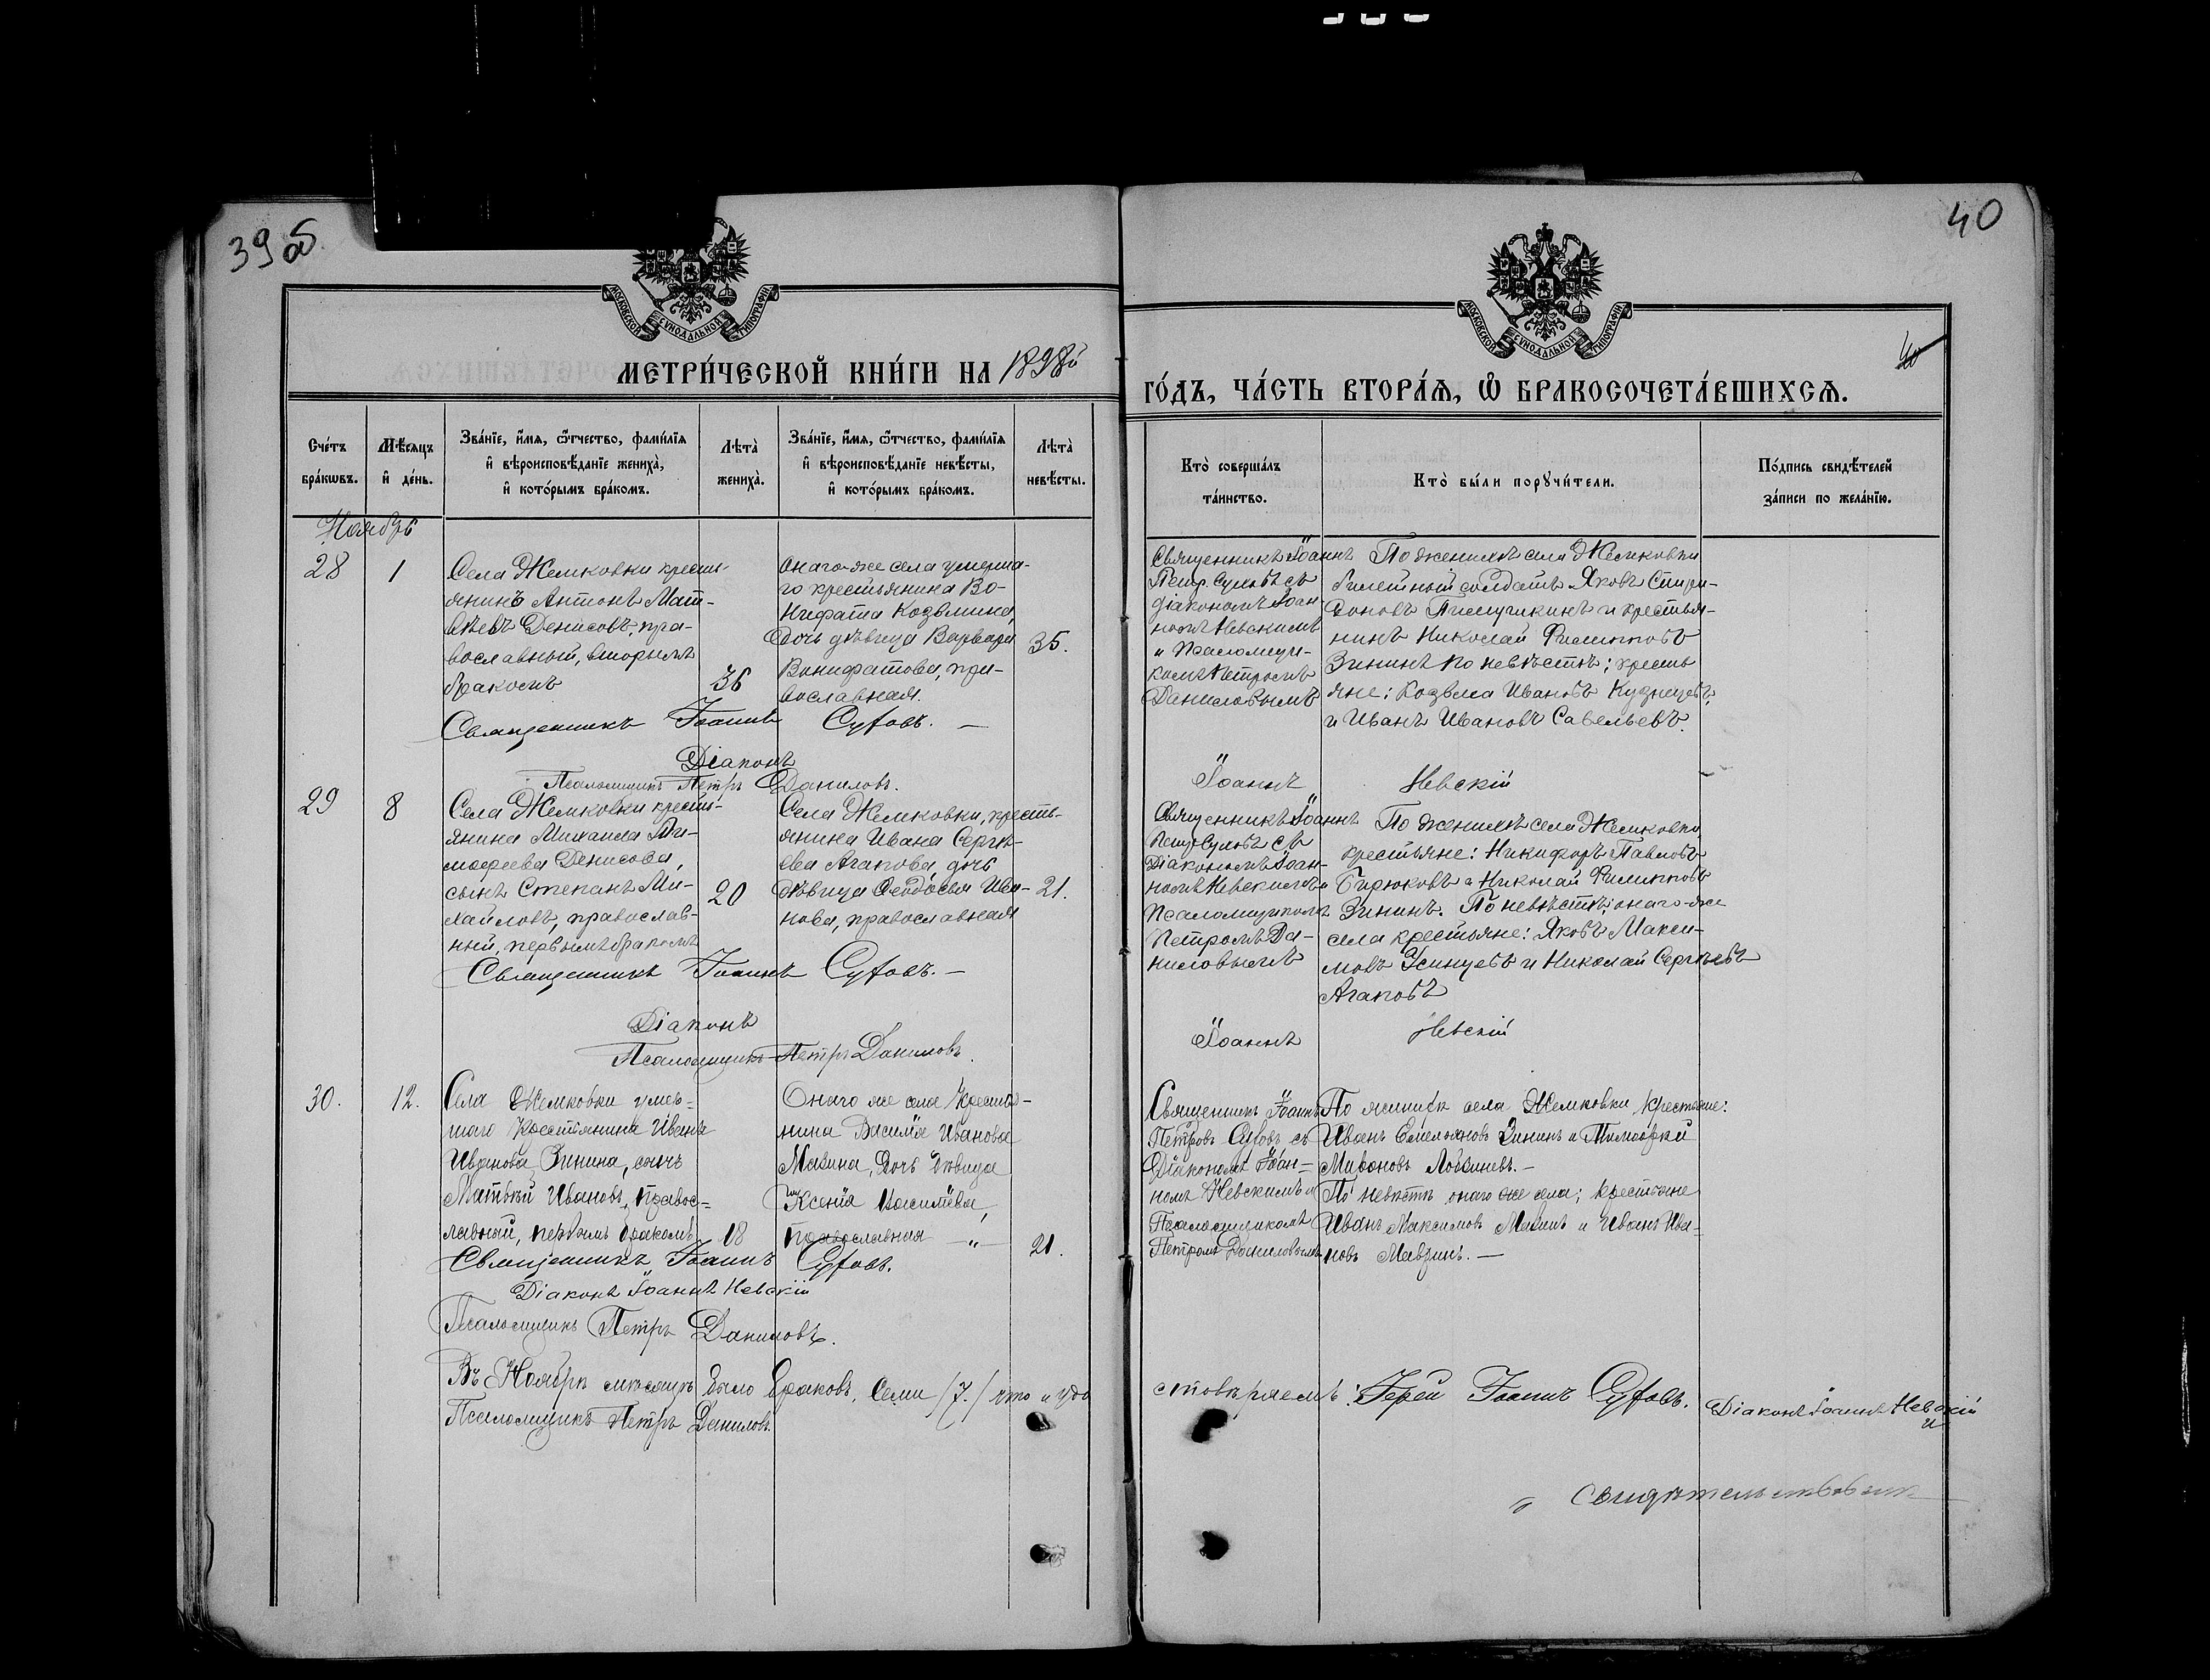 39 об.
40
МОСКОВСКОЙ СѴНОДАЛЬНОЙ ТИПОГРАФІИ
МОСКОВСКОЙ СѴНОДАЛЬНОЙ ТИПОГРАФІИ
40
МЕТРИ́ЧЕСКОЙ КНИ́ГИ НА 1898й
ГО́ДЪ, ЧА́СТЬ ВТОРА́Ѧ, Ѡ БРАКОСОЧЕТА́ВШИХСѦ.
Сче́тъ бра́кѡвъ.
Мѣ́сяцъ и҆ де́нь.
Зва́нїе, и҆́мѧ, ѻ҆́тчество, фами́лїѧ
и҆ вѣроисповѣ́данїе жениха̀,
и҆ кото́рымъ бра́комъ.
Лѣта̀ жениха̀.
Зва́нїе, и҆́мѧ, ѻ҆́тчество, фами́лїѧ
и҆ вѣроисповѣ́данїе невѣ́сты,
и҆ кото́рымъ бра́комъ.
Лѣта̀ невѣ́сты.
Кто̀ соверша́лъ та́инство.
Кто̀ бы́ли порꙋчи́тели.
По́дпись свидѣ́телей за́писи по жела́нїю.
Ноябрь
28
1
Села Жемковки кресть-
янинъ Антонъ Мат-
вѣевъ Денисовъ, пра-
вославный, вторымъ
бракомъ
36
Онаго-же села умерша-
го крестьянина Во-
нифата Козьмина,
дочь дѣвица Варвара
Вонифатова, пра-
вославная.
35.
Священникъ Іоаннъ
Петр. Сутовъ съ
діакономъ Іоан-
номъ Невскимъ
и псаломщи-
комъ Петромъ
Даниловымъ
По женихѣ села Жемковки
билетный солдатъ Яковъ Спири-
доновъ и крестья-
нинъ Николай Филипповъ
Зининъ по невѣстѣ: кресть
яне: Козьма Ивановъ Кузнецовъ,
и Иванъ Ивановъ Савельевъ.
Священникъ Іоаннъ Сутовъ. —
Діаконъ Іоаннъ Невскій
Псаломщикъ Петръ Даниловъ.
29
8
Села Жемковки кресть-
янина Михаила Ти-
мофеева Денисова,
сынъ Степанъ Ми-
хайловъ, православ-
ный, первымъ бракомъ
20
Села Жемковки, кресть-
янина Ивана Сергѣ-
ева Агапова, дочь
дѣвица Феодосья Ива-
нова, православная
21.
Священникъ Іоаннъ
Петр. Сутовъ съ
Діакономъ Іоан-
номъ Невскимъ и
псаломщикомъ
Петромъ Да-
ниловымъ
По женихѣ села Жемковки,
крестьяне: Никифоръ Павловъ
Бирюковъ и Николай Филипповъ
Зининъ. По невѣстѣ: онаго-же
села крестьяне: Яковъ Макси-
мовъ и Николай Сергѣевъ
Агаповъ
Священникъ Іоаннъ Сутовъ. —
Діаконъ Іоаннъ Невскій
Псаломщикъ Петръ Даниловъ.
30.
12.
Села Жемковки умер-
шаго крестьянина Ивана
Иванова Зинина, сынъ
Матвѣй Ивановъ, правос-
лавный, первымъ бракомъ
18
Онаго же села крестья-
нина Василія Иванова
Мавина, дочь дѣвица
Ксенія Василіева,
православная — „ —
21.
Священникъ Іоаннъ
Петровъ Сутовъ съ
Діакономъ Іоан-
номъ Невскимъ и
Псаломщикомъ
Петромъ Даниловымъ
По женихѣ села Жемковки крестьяне:
Иванъ Емельяновъ Зининъ и Тимофей
По невѣстѣ онаго же села; крестьяне
Иванъ Максимовъ и Иванъ Ива-
новъ Мавринъ. —
Священникъ Іоаннъ Сутовъ.
Діаконъ Іоаннъ Невскій
Псаломщикъ Петръ Даниловъ.
Въ Ноябрѣ мѣсяцѣ было браковъ семь /7./ что и удо
стовѣряемъ: Іерей Іоаннъ Сутовъ. Діаконъ Іоаннъ Невскій
и
Псаломщикъ Петръ Даниловъ.